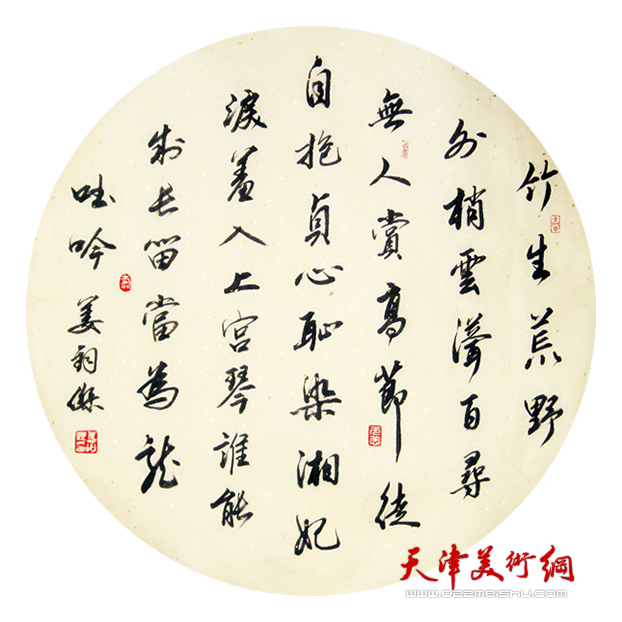 竹生荒野
外梢雲聳百尋
無人賞高節徒
自抱貞心恥染湘妃
淚羞入上宮琴誰能
制長笛當為龍
吐吟 姜
天津美術網
www.022meishu.com